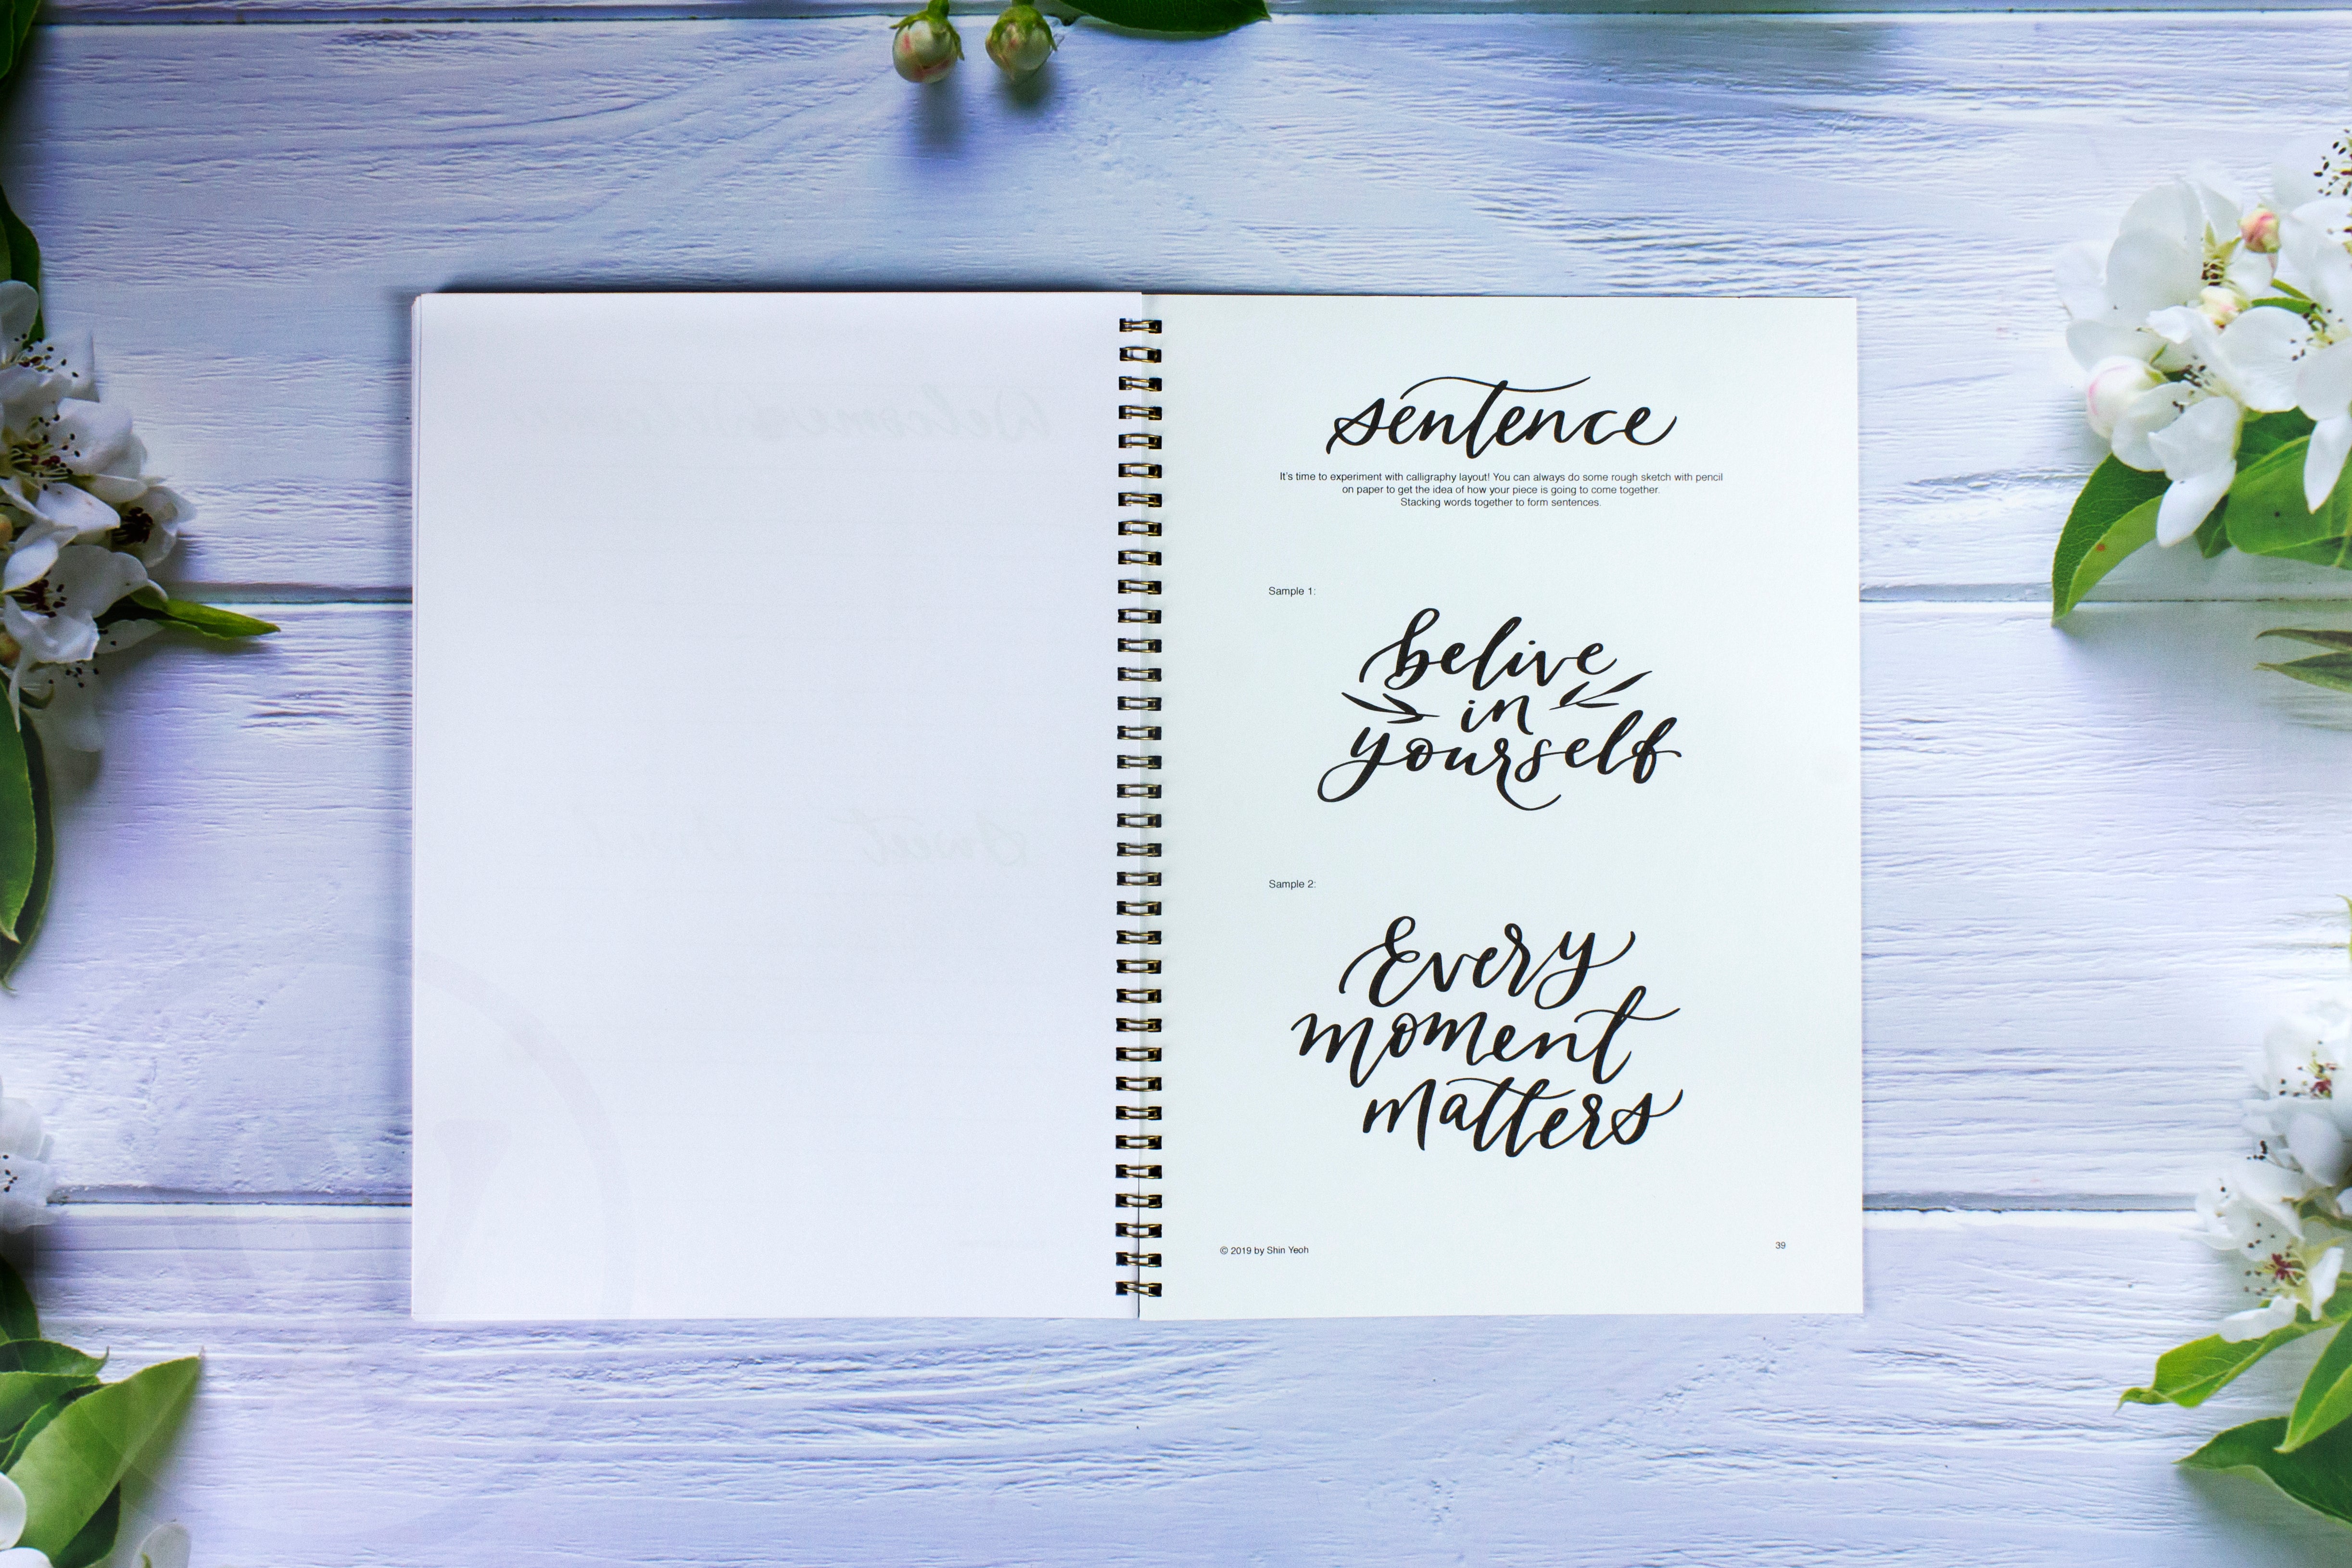 sentence
It's time to experiment with calligraphy layout! You can always do some rough sketch with pencil
on paper to get the idea of how your piece is going to come together.
Stacking words together to form sentences.
Sample 1:
belive
in
yourself
Sample 2:
Every
moment
matters
© 2019 by Shin Yeoh
39